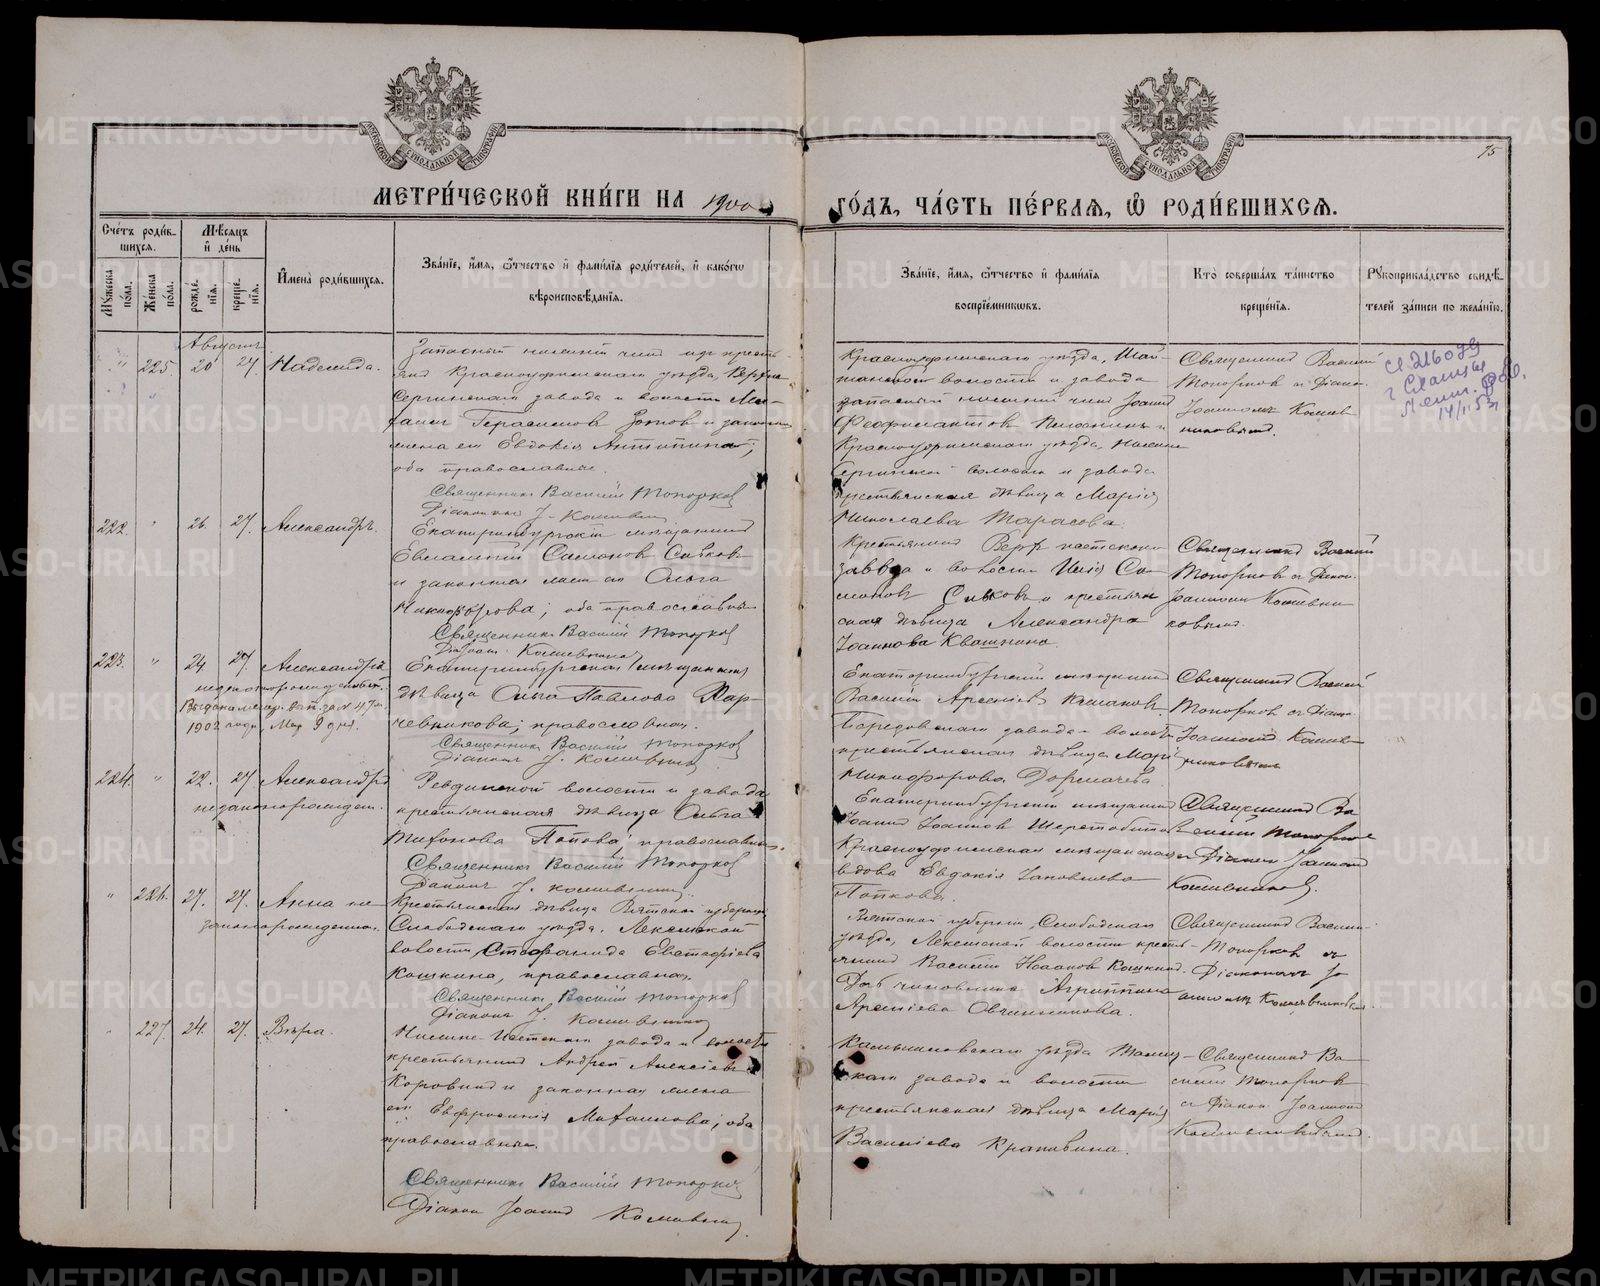 МЕТРИ́ЧЕСКОЙ КНИ́ГИ НА 1900
ГО́ДЪ, ЧА́СТЬ ПЕ́РВАѦ, Ѡ҆ РОДИ́ВШИХСѦ.
75
Сче́тъ роди́в-
шихся.
Мѣсяцъ
и де́нь
Имена̀ роди́вшихся.
Зва́нїе, и́мя, ѻтчество и фами́лїя роди́телей, и како́гѡ
вѣроисповѣ́данїя.
Зва́нїе, и́мя, ѻтчество и фами́лїя
воспрїе́мникѡвъ.
Кто̀ соверша́лъ та́инство
креще́нїя.
Рꙋкоприкла́дство свидѣ́-
телей за́писи по жела́нїю.
Мꙋжеска
по́ла.
Же́нска
по́ла.
рожде́-
нїя.
креще́-
нїя.
Августъ
225. 20 27. Надежда.
Запасный нисшій чинъ изъ кресть-
янъ Красноуфимскаго уѣзда, Верхне
Сергинскаго завода и волости Ми-
хаилъ Герасимовъ Зотовъ и законная
жена его Евдокія Антипина;
оба православные.
Священникъ Василій Топорков
Діаконъ І. Кошевни
Красноуфимскаго уѣзда, Шай-
танской волости и завода
запасный нисшій чинъ Іоаннъ
Феофилактовъ и
Красноуфимскаго уѣзда, Нижне
Сергинской волости и завода
крестьянская дѣвица Марія
Николаева Тарасова.
Священникъ Василій
Топорковъ и Діако-
Іоанномъ Кошев
никовымъ.
222. " 26. 27. Александръ.
Екатеринбургскій мѣщанинъ
Евлампій Самоновъ Сивков
и законная жена его Ольга
Никифорова; оба православные
Священникъ Василій Топорков
Діаконъ Кошевник
Крестьянинъ Верх Исетскаго
завода и волости Илія Са-
моновъ Сивковъ и крестьян
ская дѣвица Александра
Іоаннова Квашнина.
Священникъ Василій
Топорковъ съ Діако-
Іоанномъ Кошевни
ковымъ.
223. " 24 27. Александръ
незаконнорожденный.
Выдана метр. вып. за № 47
1902 года, Мая 9 дня.
Екатеринбургская мѣщанская
дѣвица Ольга Павлова Хар-
чевникова; православная.
Священникъ Василій Топорков
Діаконъ І. Кошевник
Екатеринбургскій мѣщанинъ
Василій Арсеніевъ и
завода и волости
крестьянская дѣвица Марія
Никифорова Дормачева
Священникъ Василій
Топорковъ съ Діако-
Іоанномъ Кошев
никовымъ
224. " 22. 27 Александръ
незаконнорожден.
Ревдинской волости и завода
крестьянская дѣвица Ольга
Тихонова Попова; православная.
Священникъ Василій Топорков
Діаконъ І. Кошевник
Екатеринбургскій мѣщанинъ
Іоаннъ Іоанновъ Шерстобитовъ
Красноуфимская мѣщанская
вдова Евдокія Іаковлева
Попкова.
Священникъ Ва
силій Топорков
съ Діакон Іоанномъ
Кошевников.
" 226. 27. 27. Анна не-
законнорожденная.
Крестьянская дѣвица Вятской губерніи
Слободскаго уѣзда, Лекомской
волости, Стефанида Евстафіева
Кошкина, православная.
Священникъ Василій Топорков
Діаконъ І. Кошевник
Вятской губерніи, Слободскаго
уѣзда, Лекомской волости кресть-
янинъ Василій Іоанновъ Кошкинъ.
Дѣв чиновника Агриппина
Арсеніева Овчинникова.
Священникъ Василій
Топорковъ съ
Діакономъ Іо
анномъ Кошевниковым.
" 227. 24. 27. Вѣра.
Нижне-Исетскаго завода и волости
крестьянинъ Андрей Алексіевъ
Коровинъ и законная жена
его Евфросинія Михаилова; оба
православные.
Священникъ Василій Топорков
Діаконъ Іоаннъ Кошевник
Камышловскаго уѣзда Талиц-
каго завода и волости
крестьянская дѣвица Марія
Василіева Крапивина.
Священникъ Ва-
силій Топорков
съ Діакон Іоанном
Кошевниковым.
14/II.53
METRIKI.GASO-URAL.RU